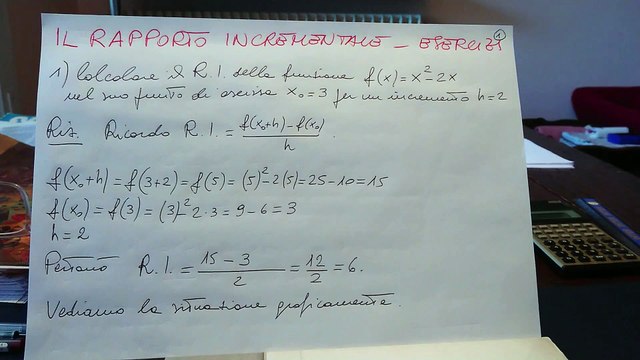 IL RAPPORTO INCREMENTALE - ESERCIZI 1
1) Calcolare il R.I. della funzione f(x)=x²-2x
nel suo punto di ascissa x₀=3 per un incremento h=2
Ris. Ricordo R.I. = (f(x₀+h)-f(x₀))/h.
f(x₀+h)=f(3+2)=f(5)=(5)²-2(5)=25-10=15
f(x₀)=f(3)=(3)²-2·3=9-6=3
h=2
Pertanto R.I. = (15-3)/2 = 12/2 = 6.
Vediamo la situazione graficamente.